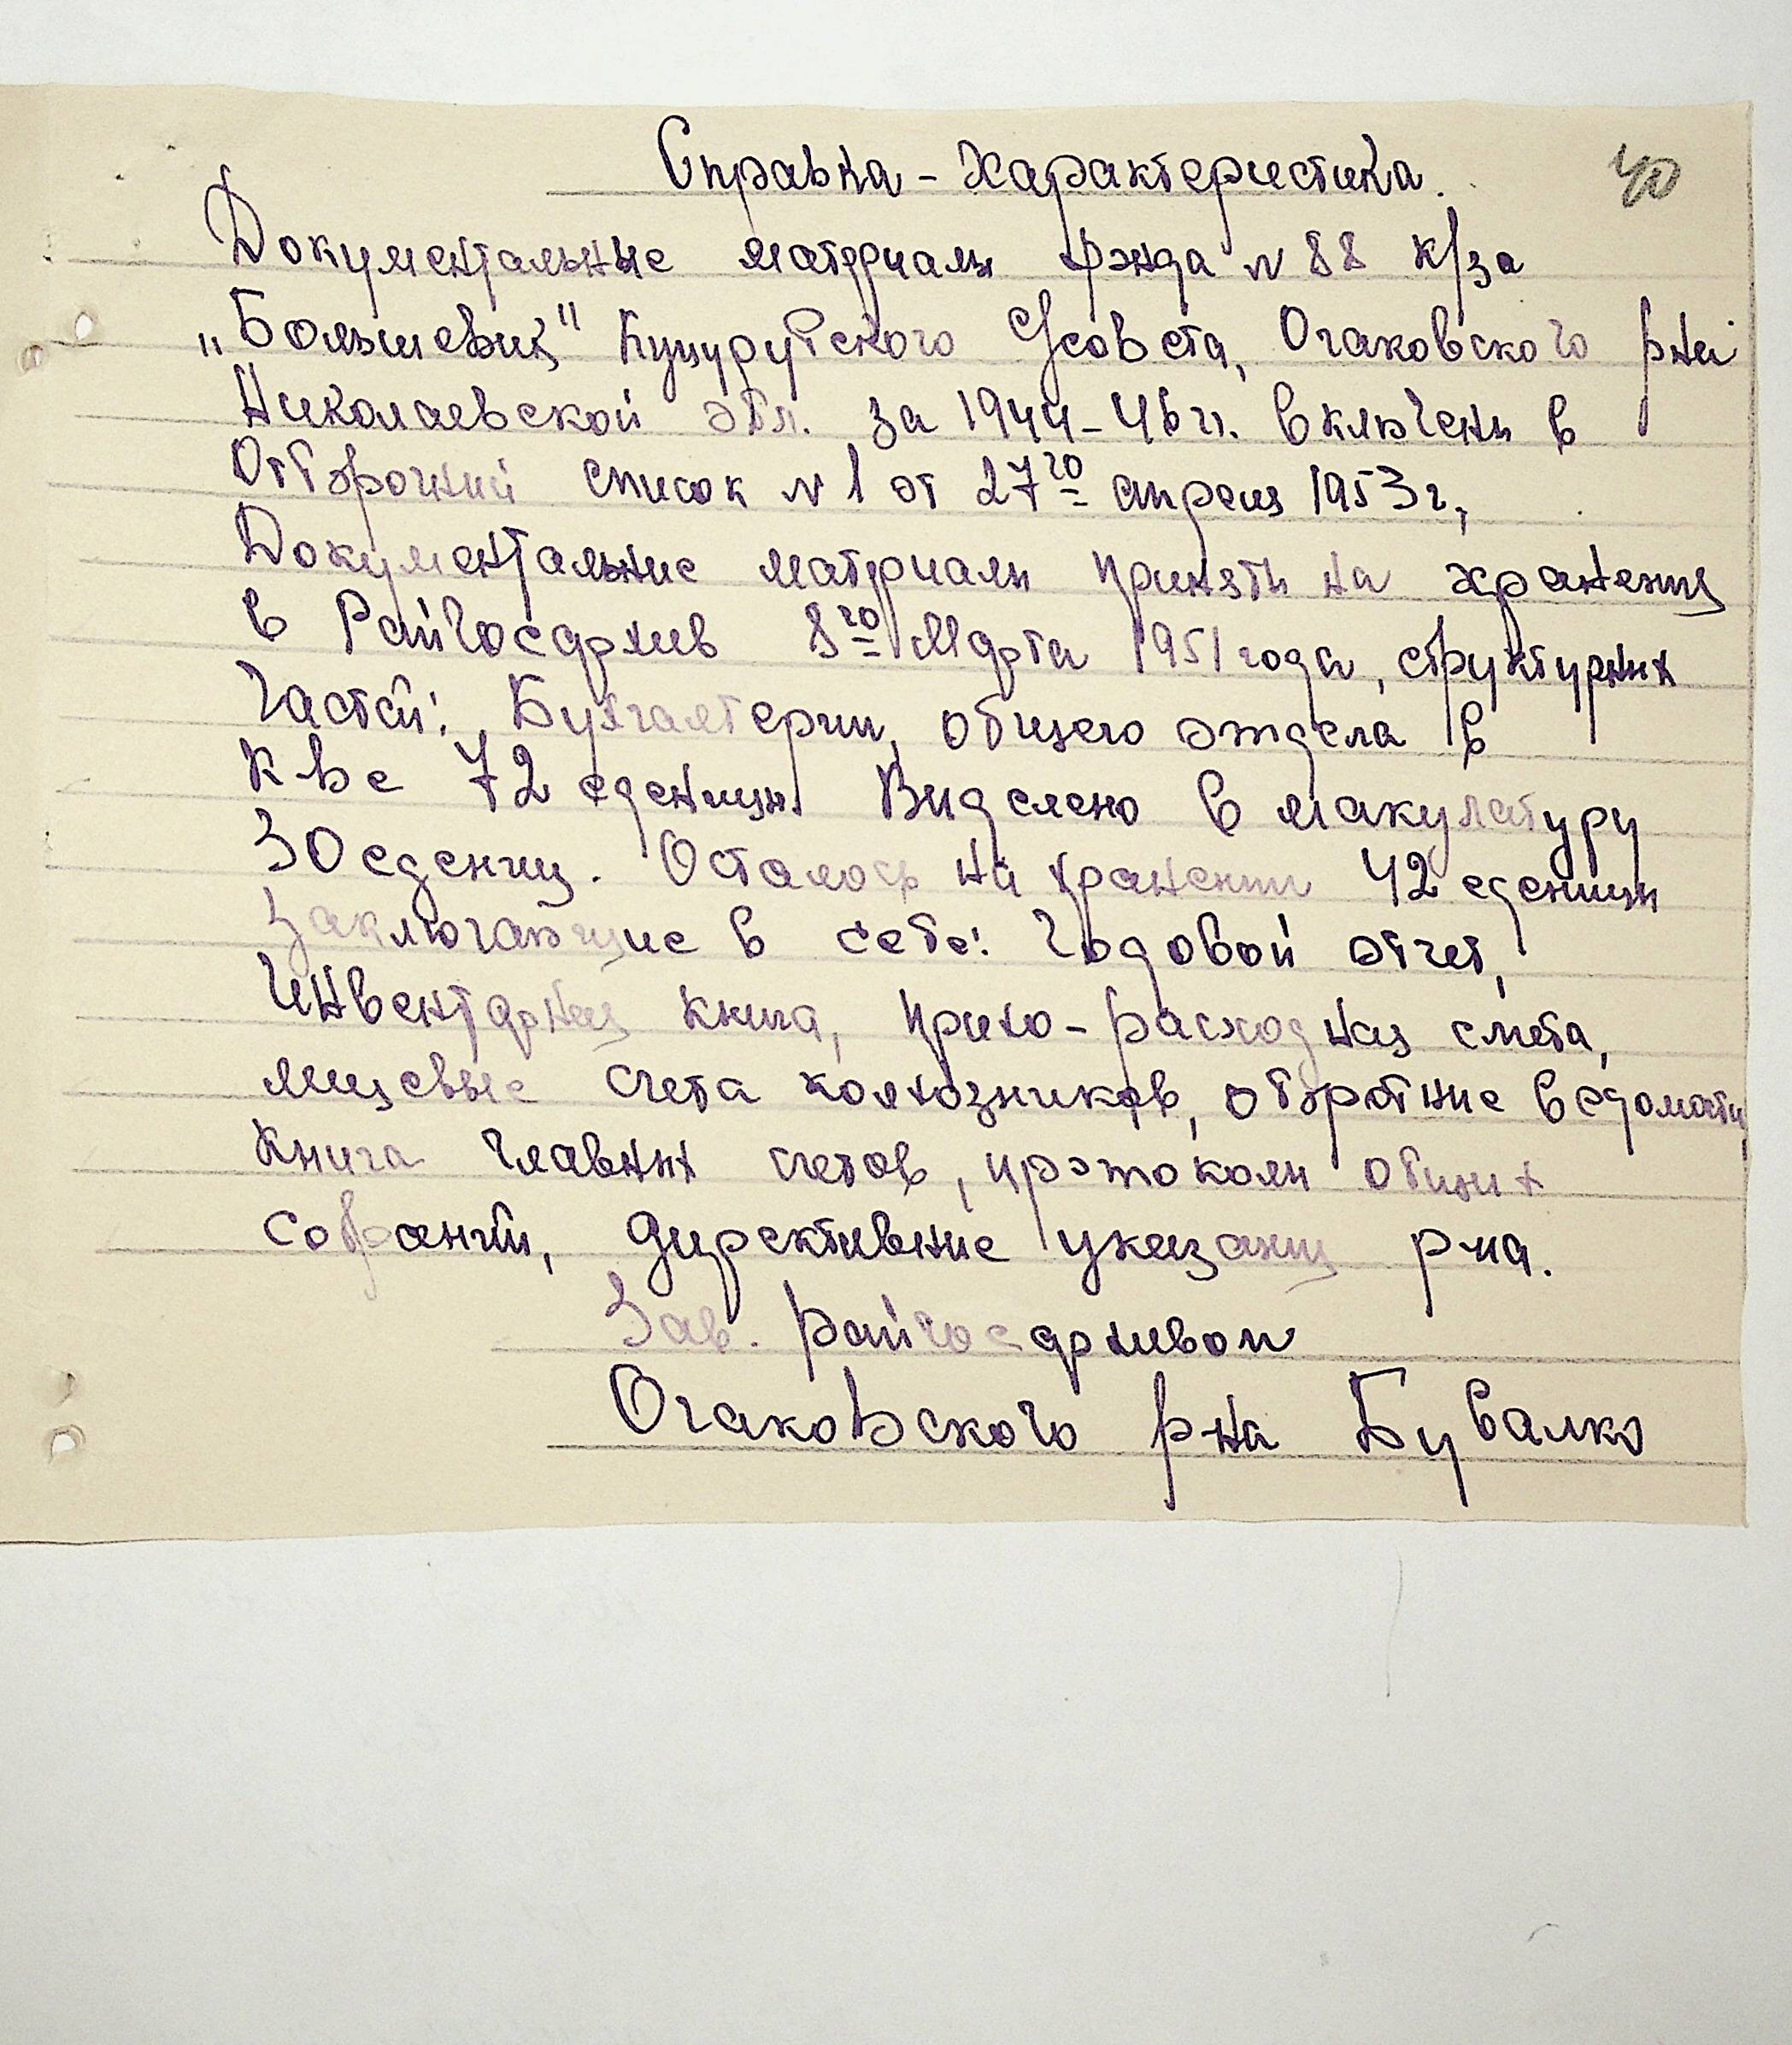 Справка - характеристика.
40
Документальные материалы фонда № 88 к/за
„Большевик" Куцурубского С/совета, Очаковского р-на
Николаевской обл. за 1944-46 гг. включены в
Отборочний список № 1 от 27го апреля 1953 г,
Документальние материалы приняты на хранения
в Райгосархив 8го Марта 1951 года, структурных
частей: Бухгалтерии, общего отдела в
к-ве 72 еденицы. Виделено в макулатуру
30 едениц. Осталось на хранении 42 еденицы
заключающие в себе: Годовой отчет,
Инвентарная книга, прихо-расходная смета,
лицевые счета колхозников, оборотние ведомости,
книга главних счетов, протоколы общих
собраний, директивние указания р-на.
Зав. райгосархивом
Очаковского р-на Бувалко